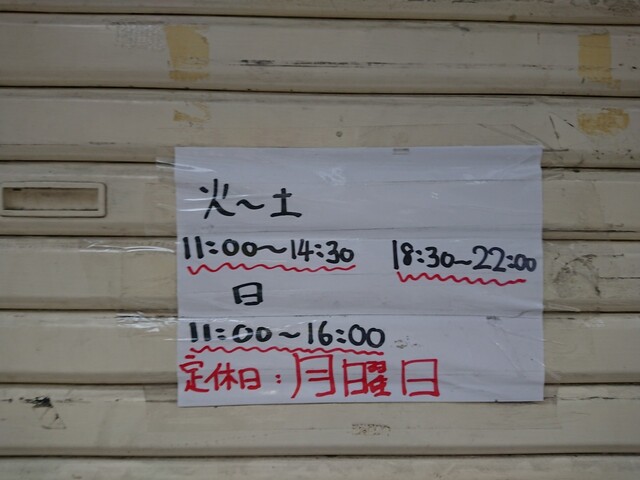 火〜土
11:00〜14:30 18:30〜22:00
日
11:00〜16:00
定休日:月曜日